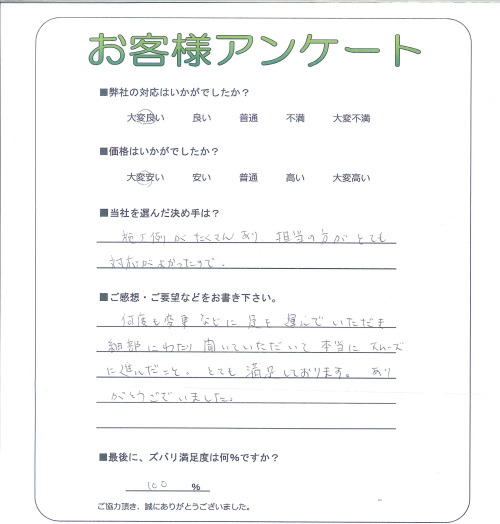 お客様アンケート
■弊社の対応はいかがでしたか？
大変良い 良い 普通 不満 大変不満
■価格はいかがでしたか？
大変安い 安い 普通 高い 大変高い
■当社を選んだ決め手は？
施工例がたくさんあり 担当の方がとても
対応がよかったので.
■ご感想・ご要望などをお書き下さい。
何度も変更などに足を運んでいただき
細部にわたり聞いていただいて本当にスムーズ
に進んだこと。とても満足しております。あり
がとうございました。
■最後に、ズバリ満足度は何%ですか？
100 %
ご協力頂き、誠にありがとうございました。